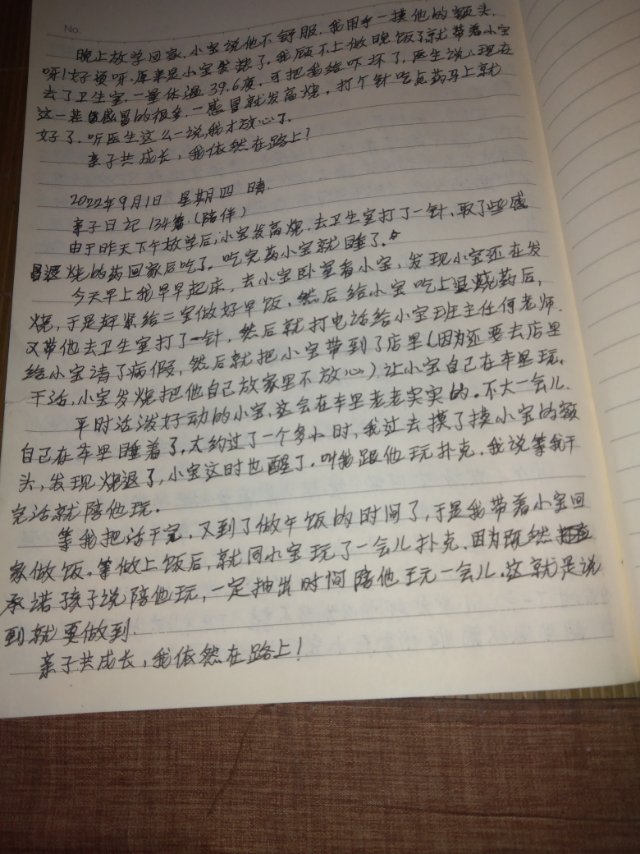 No.
晚上放学回家,小宝说他不舒服,我用手一摸他的额头,
呀!好烫呀,原来是小宝发烧了,我顾不上做晚饭了就带着小宝
去了卫生室,一量体温39.6度,可把我给吓坏了,医生说:现在
这一差感冒的很多,一感冒就发高烧,打个针吃点药马上就
好了,听医生这么一说,我才放心了。
亲子共成长,我依然在路上!
2022年9月1日 星期四 晴
亲子日记 134篇(陪伴)
由于昨天下午放学后,小宝发高烧,去卫生室打了一针,取了些感
冒退烧的药回家后吃了。吃完药小宝就睡了。
今天早上我早早起床,去小宝卧室看小宝,发现小宝还在发
烧,于是赶紧给二宝做好早饭,然后给小宝吃上退烧药后,
又带他去卫生室打了一针,然后就打电话给小宝班主任何老师
给小宝请了病假,然后就把小宝带到了店里(因为还要去店里
干活,小宝发烧把他自己放家里不放心)让小宝自己在车里玩。
平时活泼好动的小宝,这会在车里老老实实的。不大一会儿
自己在车里睡着了,大约过了一个多小时,我过去摸了摸小宝的额
头,发现烧退了,小宝这时也醒了。叫我跟他玩扑克,我说等我干
完活就陪他玩。
等我把活干完,又到了做午饭的时间了,于是我带着小宝回
家做饭。等做上饭后,就同小宝玩了一会儿扑克,因为既然
承诺孩子说陪他玩,一定抽出时间陪他玩一会儿。这就是说
到就要做到.
亲子共成长,我依然在路上!